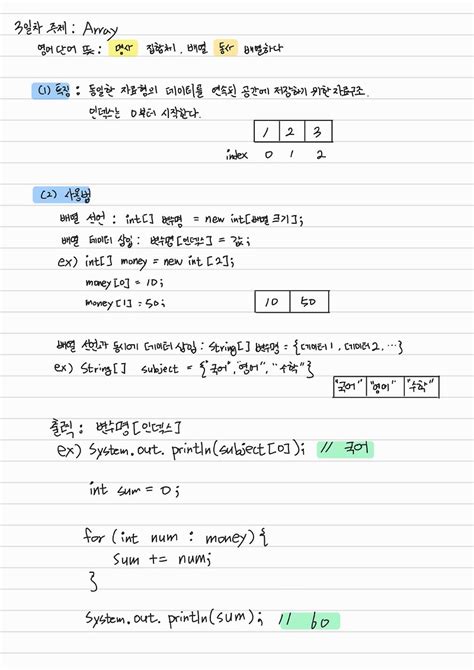 3일차 주제 : Array
영어단어 뜻 : 명사 집합체, 배열 동사 배열하다
(1) 특징 : 동일한 자료형의 데이터를 연속된 공간에 저장하기 위한 자료구조.
인덱스는 0부터 시작한다.
1 2 3
index 0 1 2
(2) 사용법
배열 선언 : int[] 변수명 = new int[배열 크기];
배열 데이터 삽입 : 변수명[인덱스] = 값;
ex) int[] money = new int [2];
money[0] = 10;
money[1] = 50;
10 50
배열 선언과 동시에 데이터 삽입 : String[] 변수명 = {데이터1, 데이터2, ...}
ex) String[] subject = {"국어", "영어", "수학"}
"국어" "영어" "수학"
출력 : 변수명[인덱스]
ex) System.out.println(subject[0]); // 국어
int sum = 0;
for (int num : money) {
sum += num;
}
System.out.println(sum); // 60